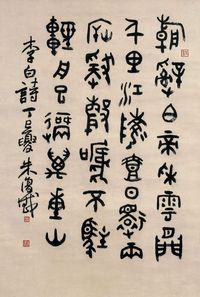 朝辭白帝采雲間
千里江陵壹日還兩
岸猿聲嗁不駐
輕舟已過萬重山
李白詩 丁巳夏 朱復戡